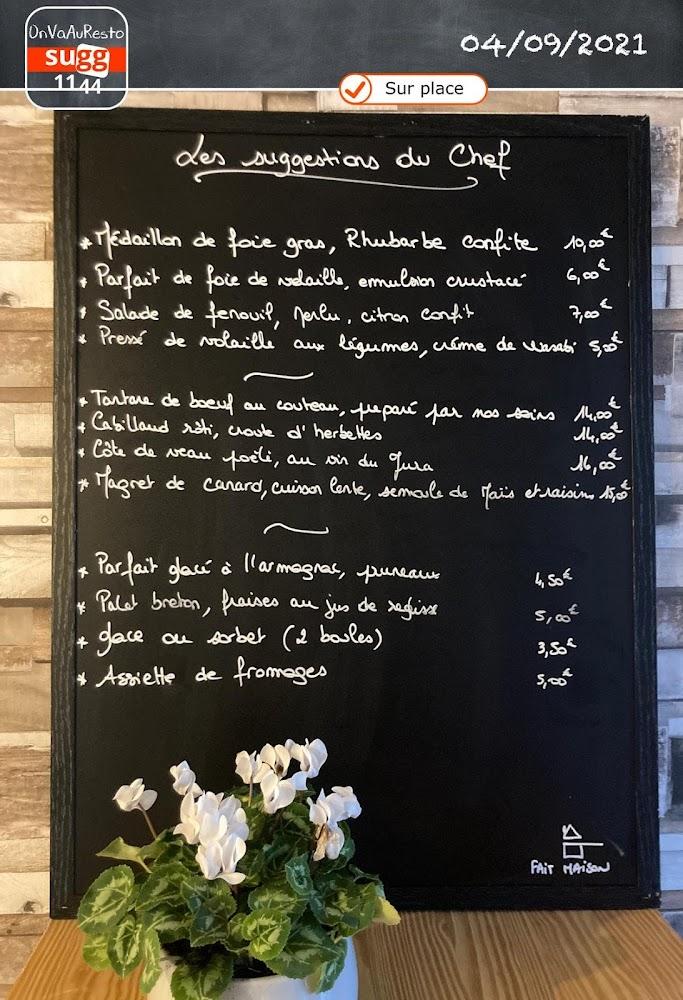 OnVaAuResto
sugg
1144
04/09/2021
Sur place
Les suggestions du Chef
* Médaillon de foie gras, Rhubarbe confite 10,00€
* Parfait de foie de volaille, emulsion crustacé 6,00€
* Salade de fenouil, Merlu, citron confit 7,00€
* Pressé de volaille aux légumes, crème de wasabi 5,00€
* Tartare de boeuf au couteau, préparé par nos soins 14,00€
* Cabillaud rôti, croute d'herbettes 14,00€
* Côte de veau poêlé, au vin du Jura 16,00€
* Magret de canard, cuisson lente, semoule de Maïs et raisins 15,00€
* Parfait glacé à l'armagnac, pruneaux 4,50€
* Palet breton, fraises au jus de reglisse 5,00€
* glace ou sorbet (2 boules) 3,50€
* Assiette de fromages 5,00€
FAIT MAISON